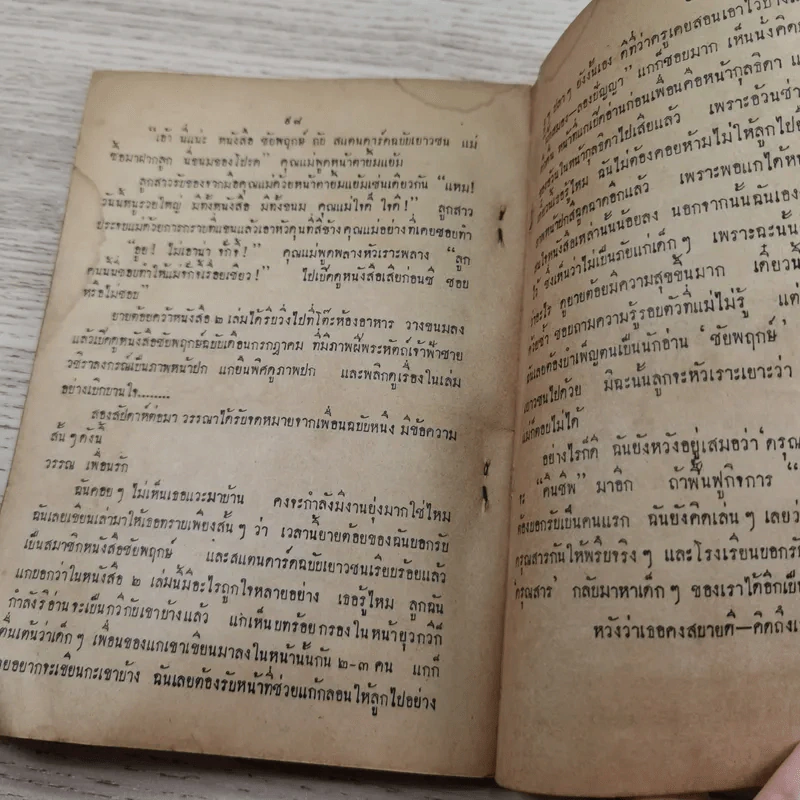 ๙๘
"เอ้า นี่แน่ะ หนังสือ ชัยพฤกษ์ กับ สแตนดาร์ดฉบับเยาวชน แม่
ซื้อมาฝากลูก นี่ขนมของโปรด" คุณแม่พูดหน้าตายิ้มแย้ม
ลูกสาวรับของจากมือคุณแม่ด้วยหน้าตายิ้มแย้มเช่นเดียวกัน "แหม!
วันนี้หนูรวยใหญ่ มีทั้งหนังสือ มีทั้งขนม คุณแม่ใจดี๊ ใจดี!" ลูกสาว
ประจบแม่ด้วยการกราบที่แขนแล้วเอาหัวดุนที่สีข้างคุณแม่อย่างที่เคยชอบทำ
"อุ๊ย! ไม่เอาน่า จั๊กจี้!" คุณแม่พูดพลางหัวเราะพลาง "ลูก
คนนี้ชอบทำให้แม่จั๊กจี้เรื่อยเชียว!" ไปเปิดดูหนังสือเสียก่อนซิ ชอบ
หรือไม่ชอบ"
ยายต้อยคว้าหนังสือ ๒ เล่มได้รีบวิ่งไปที่โต๊ะห้องอาหาร วางขนมลง
แล้วเปิดดูหนังสือชัยพฤกษ์ฉบับเดือนกรกฎาคม ที่มีภาพฝีพระหัตถ์เจ้าฟ้าชาย
วชิราลงกรณ์เป็นภาพหน้าปก แกยืนพิศดูภาพปก และพลิกดูเรื่องในเล่ม
อย่างเบิกบานใจ........
สองสัปดาห์ต่อมา วรรณาได้รับจดหมายจากเพื่อนฉบับหนึ่ง มีข้อความ
สั้นๆ ดังนี้
วรรณ เพื่อนรัก
ฉันคอยๆ ไม่เห็นเธอแวะมาบ้าน คงจะกำลังมีงานยุ่งมากใช่ไหม
ฉันเลยเขียนเล่ามาให้เธอทราบเพียงสั้นๆ ว่า เวลานี้ยายต้อยของฉันยอมรับ
เป็นสมาชิกหนังสือชัยพฤกษ์ และสแตนดาร์ดฉบับเยาวชนเรียบร้อยแล้ว
แกบอกว่าในหนังสือ ๒ เล่มนี้มีอะไรถูกใจหลายอย่าง เธอรู้ไหม ลูกฉัน
กำลังริอ่านจะเป็นกวีกับเขาบ้างแล้ว แกเห็นบทร้อยกรองในหน้ายุวกวีก็
ตื่นเต้นว่าเด็กๆ เพื่อนของแกเขาเขียนมาลงในหน้านั้นกัน ๒-๓ คน แกก็
เลยอยากจะเขียนกะเขาบ้าง ฉันเลยต้องรับหน้าที่ช่วยแก้กลอนให้ลูกไปอย่าง
ๆ ยังงั้นเอง ดีที่ว่าครูเคยสอนเอาไว้บ้าง
สมอง—ลองปัญญา" แกก็ชอบมาก เห็นนั่งคิด
หน้าที่แกเปิดอ่านก่อนเพื่อนคือหน้ากุลธิดา แ
ในหน้ากุลธิดาไปเสียแล้ว เพราะอ้วนซ่า
รู้ไหม ฉันไม่ต้องคอยห้ามไม่ให้ลูกไป
หน้าปกสีฉูดฉาดอีกแล้ว เพราะพอแกได้ห
หนังสือเหล่านั้นน้อยลง นอกจากนั้นฉันเอง
ซึ่งเห็นว่าไม่เป็นภัยแก่เด็กๆ เพราะฉะนั้
อะไร ดูยายต้อยมีความสุขขึ้นมาก เดี๋ยวนี้
ชอบถามความรู้รอบตัวที่แม่ไม่รู้ แต่
ฉันเลยต้องบำเพ็ญตนเป็นนักอ่าน 'ชัยพฤกษ์'
เยาวชนไปด้วย มิฉะนั้นลูกจะหัวเราะเยาะว่า
แม่ก็ตอบไม่ได้
อย่างไรก็ดี ฉันยังหวังอยู่เสมอว่า 'ดรุณ
"คืนชีพ" มาอีก ถ้าฟื้นฟูกิจการ "
ต้องบอกรับเป็นคนแรก ฉันยังคิดเล่นๆ เลยว่
ดรุณสารกันให้พรึบจริงๆ และโรงเรียนบอกรับ
'ดรุณสาร' กลับมาหาเด็กๆ ของเราได้อีกเป็น
หวังว่าเธอคงสบายดี—คิดถึงเ